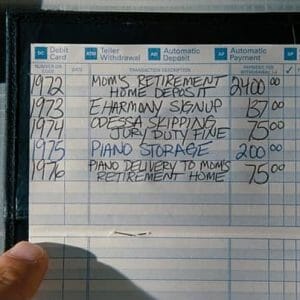 DC Debit Card ATM Teller Withdrawal AD Automatic Deposit AP Automatic Payment
TRANSACTION DESCRIPTION
1972 MOM'S RETIREMENT 2400 00
HOME DEPOSIT
1973 EHARMONY SIGNUP 137 00
1974 ODESSA SKIPPING 75 00
JURY DUTY FINE
1975 PIANO STORAGE 200 00
1976 PIANO DELIVERY TO MOM'S 75 00
RETIREMENT HOME